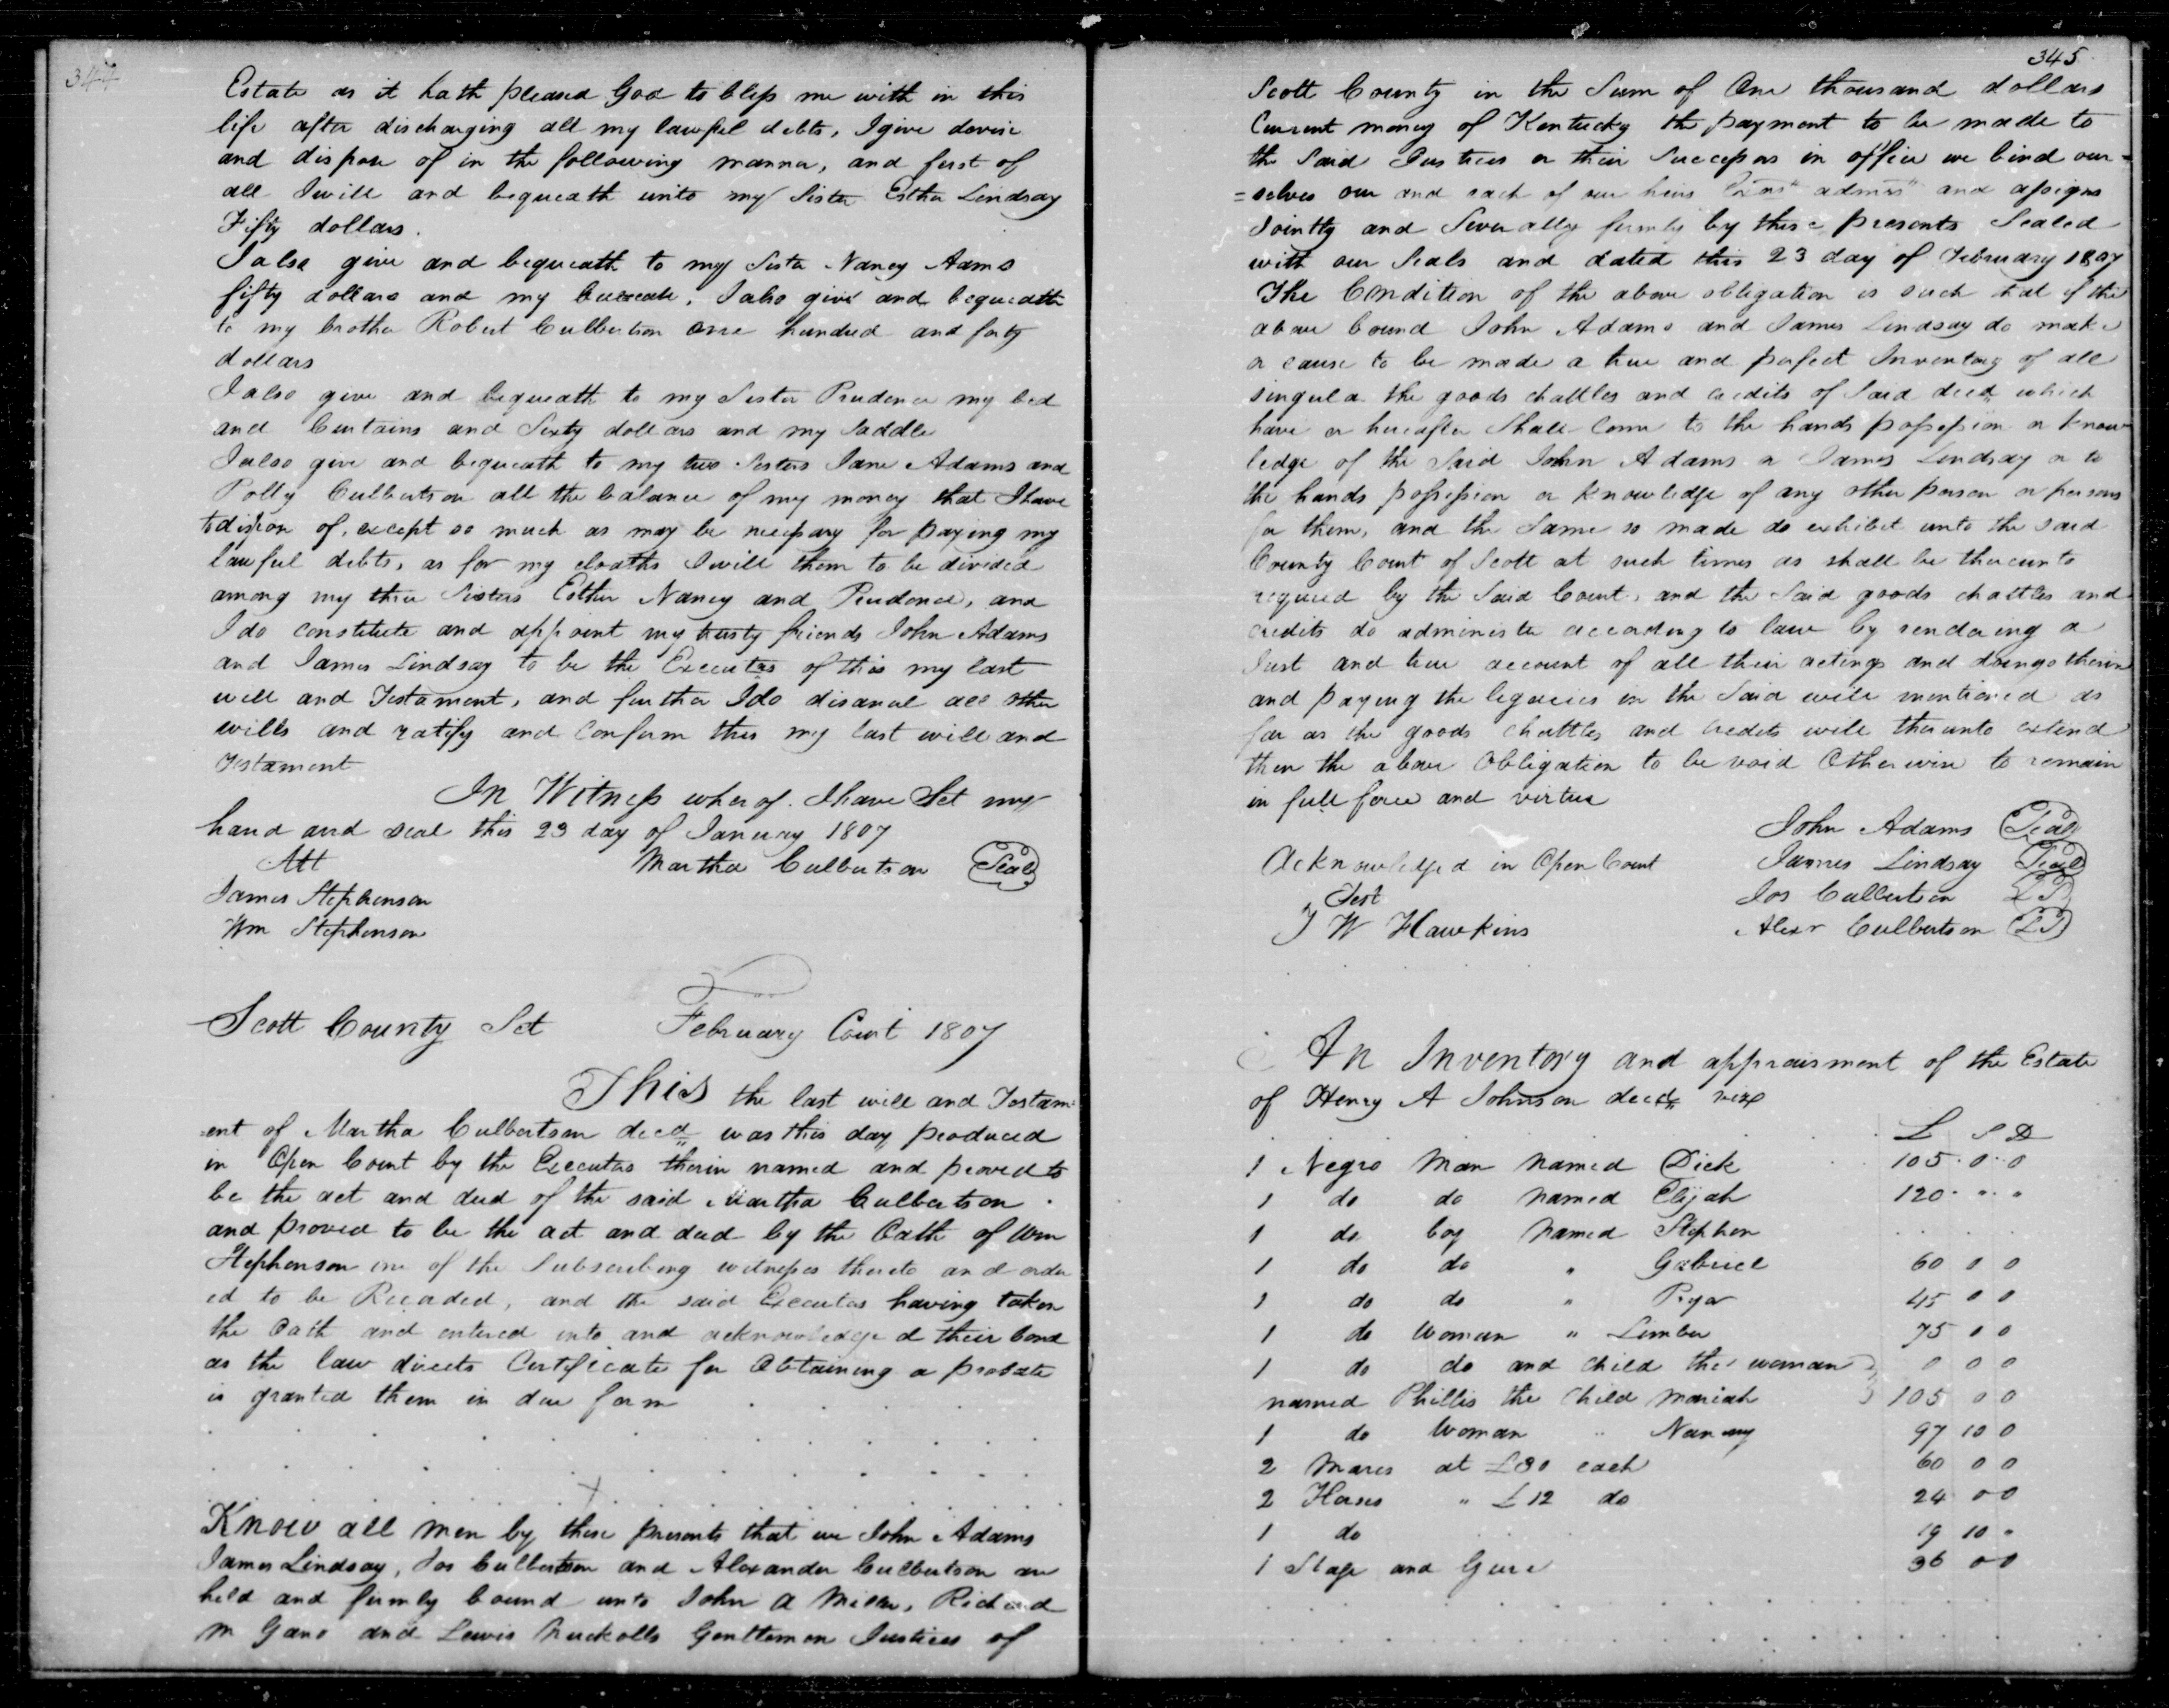 344
Estate as it hath pleased God to bless me with in this
life after discharging all my lawful debts, I give devise
and dispose of in the following manner, and first of
all I will and bequeath unto my Sister Esther Lindsay
Fifty dollars.
I also give and bequeath to my Sister Nancy Aams
fifty dollars and my . I also give and bequeath
to my brother Robert Culbertson one hundred and forty
dollars
I also give and bequeath to my Sister Prudence my bed
and Curtains and Sixty dollars and my Saddle
I also give and bequeath to my two Sisters Jane Adams and
Polly Culbertson all the balance of my money that I have
of, except so much as may be necessary for paying my
lawful debts, as for my cloaths I will them to be divided
among my three Sisters Esther Nancy and Prudence, and
I do constitute and appoint my trusty friends John Adams
and James Lindsay to be the Executors of this my last
will and Testament, and further I do disanul all other
wills and ratify and Confirm this my last will and
Testament
In Witness wherof. I have Set my
hand and seal this 23 day of January 1807
Att Martha Culbertson Seal
James Stephenson
Wm Stephenson
Scott County Sct February Court 1807
This the last will and Testam=
ent of Martha Culbertson decd was this day produced
in Open Court by the Executors therin named and proved to
be the act and deed of the said Martha Culbertson
and proved to be the act and deed by the Oath of Wm
Stephenson one of the Subscribing witnesses thereto and order
ed to be Recorded, and the said Executors having taken
the Oath and entered into and acknowledged their bond
as the law directs Certificate for Obtaining a probate
is granted them in due form
Know all men by these presents that we John Adams
James Lindsay, Jos Culbertson and Alexander Culbertson are
held and firmly bound unto John A Miller, Richard
M Gano and Lewis Nuckolls Gentlemen Justices of
345
Scott County in the Sum of One thousand dollars
Current money of Kentucky the payment to be made to
the Said Justices or their Successors in office we bind our=
=selves our and each of our heirs admrs and assigns
Jointly and Severally firmly by these presents Sealed
with our Seals and dated this 23 day of February 1807
The Condition of the above obligation is such that if the
above bound John Adams and James Lindsay do make
or cause to be made a true and perfect Inventory of all
singular the goods chattles and credits of Said decd which
have or hereafter Shall Come to the hands possession or know
ledge of the Said John Adams or James Lindsay or to
the hands possession or knowledge of any other person or persons
for them, and the Same so made do exhibit unto the said
County Court of Scott at such times as shall be thereunto
required by the Said Court, and the Said goods chattles and
credits do administer according to law by rendering a
Just and true account of all their actings and doings therin
and paying the legacies in the Said will mentioned as
far as the goods chattles and credits will thereunto extend
then the above Obligation to be void Otherwise to remain
in full force and virtue
John Adams Seal
Acknowledged in Open Court James Lindsay Seal
Test Jos Culbertson LS
J W Hawkins Alexr Culbertson LS
An Inventory and appraisment of the Estate
of Henry A Johnson decd viz
L S D
1 Negro Man named Dick 105 0 0
1 do do named Elijah 120 " "
1 do boy named Stephen
1 do do " Gabriel 60 0 0
1 do do " 45 0 0
1 do Woman " 75 0 0
1 do do and child the woman 0 0 0
named Phillis the Child Mariah 105 0 0
1 do Woman " 97 10 0
2 Mares at £30 each 60 0 0
2 Horses " £12 do 24 0 0
1 do 19 10 "
1 Stage and Gear 36 0 0